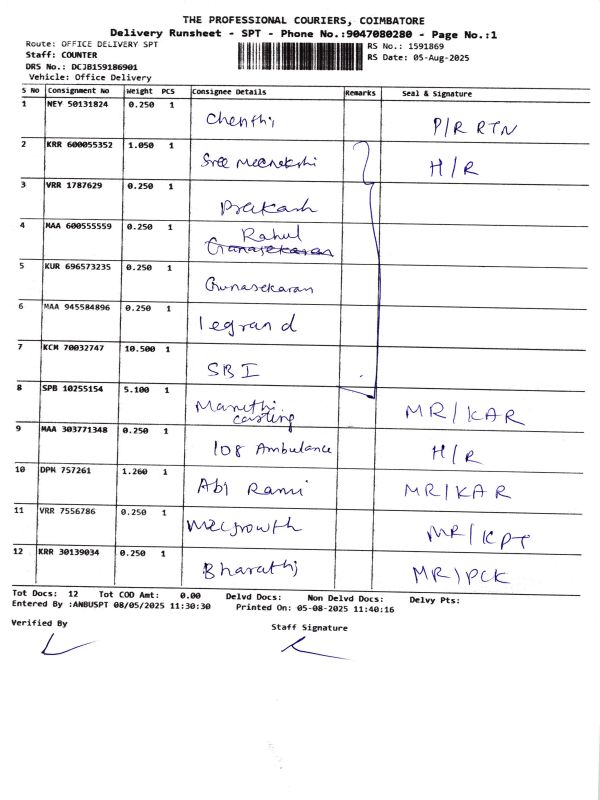 THE PROFESSIONAL COURIERS, COIMBATORE
Delivery Runsheet - SPT - Phone No.:9047080280 - Page No.:1
Route: OFFICE DELIVERY SPT
RS No.: 1591869
Staff: COUNTER
RS Date: 05-Aug-2025
DRS No.: DCJB159186901
Vehicle: Office Delivery
S No Consignment No Weight PCS Consignee Details Remarks Seal & Signature
1 NEY 50131824 0.250 1 Chenthi P/R RTN
2 KRR 600055352 1.050 1 Sree Meenakshi H/R
3 VRR 1787629 0.250 1 Prakash
4 MAA 600555559 0.250 1 Rahul
Gunasekaran
5 KUR 696573235 0.250 1 Gunasekaran
6 MAA 945584896 0.250 1 legrand
7 KCM 70032747 10.500 1 SBI
8 SPB 10255154 5.100 1 Maruthi casting MR/KAR
9 MAA 303771348 0.250 1 108 Ambulance H/R
10 DPM 757261 1.260 1 Abi Rami MR/KAR
11 VRR 7556786 0.250 1 MR/KPT
12 KRR 30139034 0.250 1 Bharathi MR/PCK
Tot Docs: 12 Tot COD Amt: 0.00 Delvd Docs: Non Delvd Docs: Delvy Pts:
Entered By :ANBUSPT 08/05/2025 11:30:30 Printed On: 05-08-2025 11:40:16
Verified By
Staff Signature